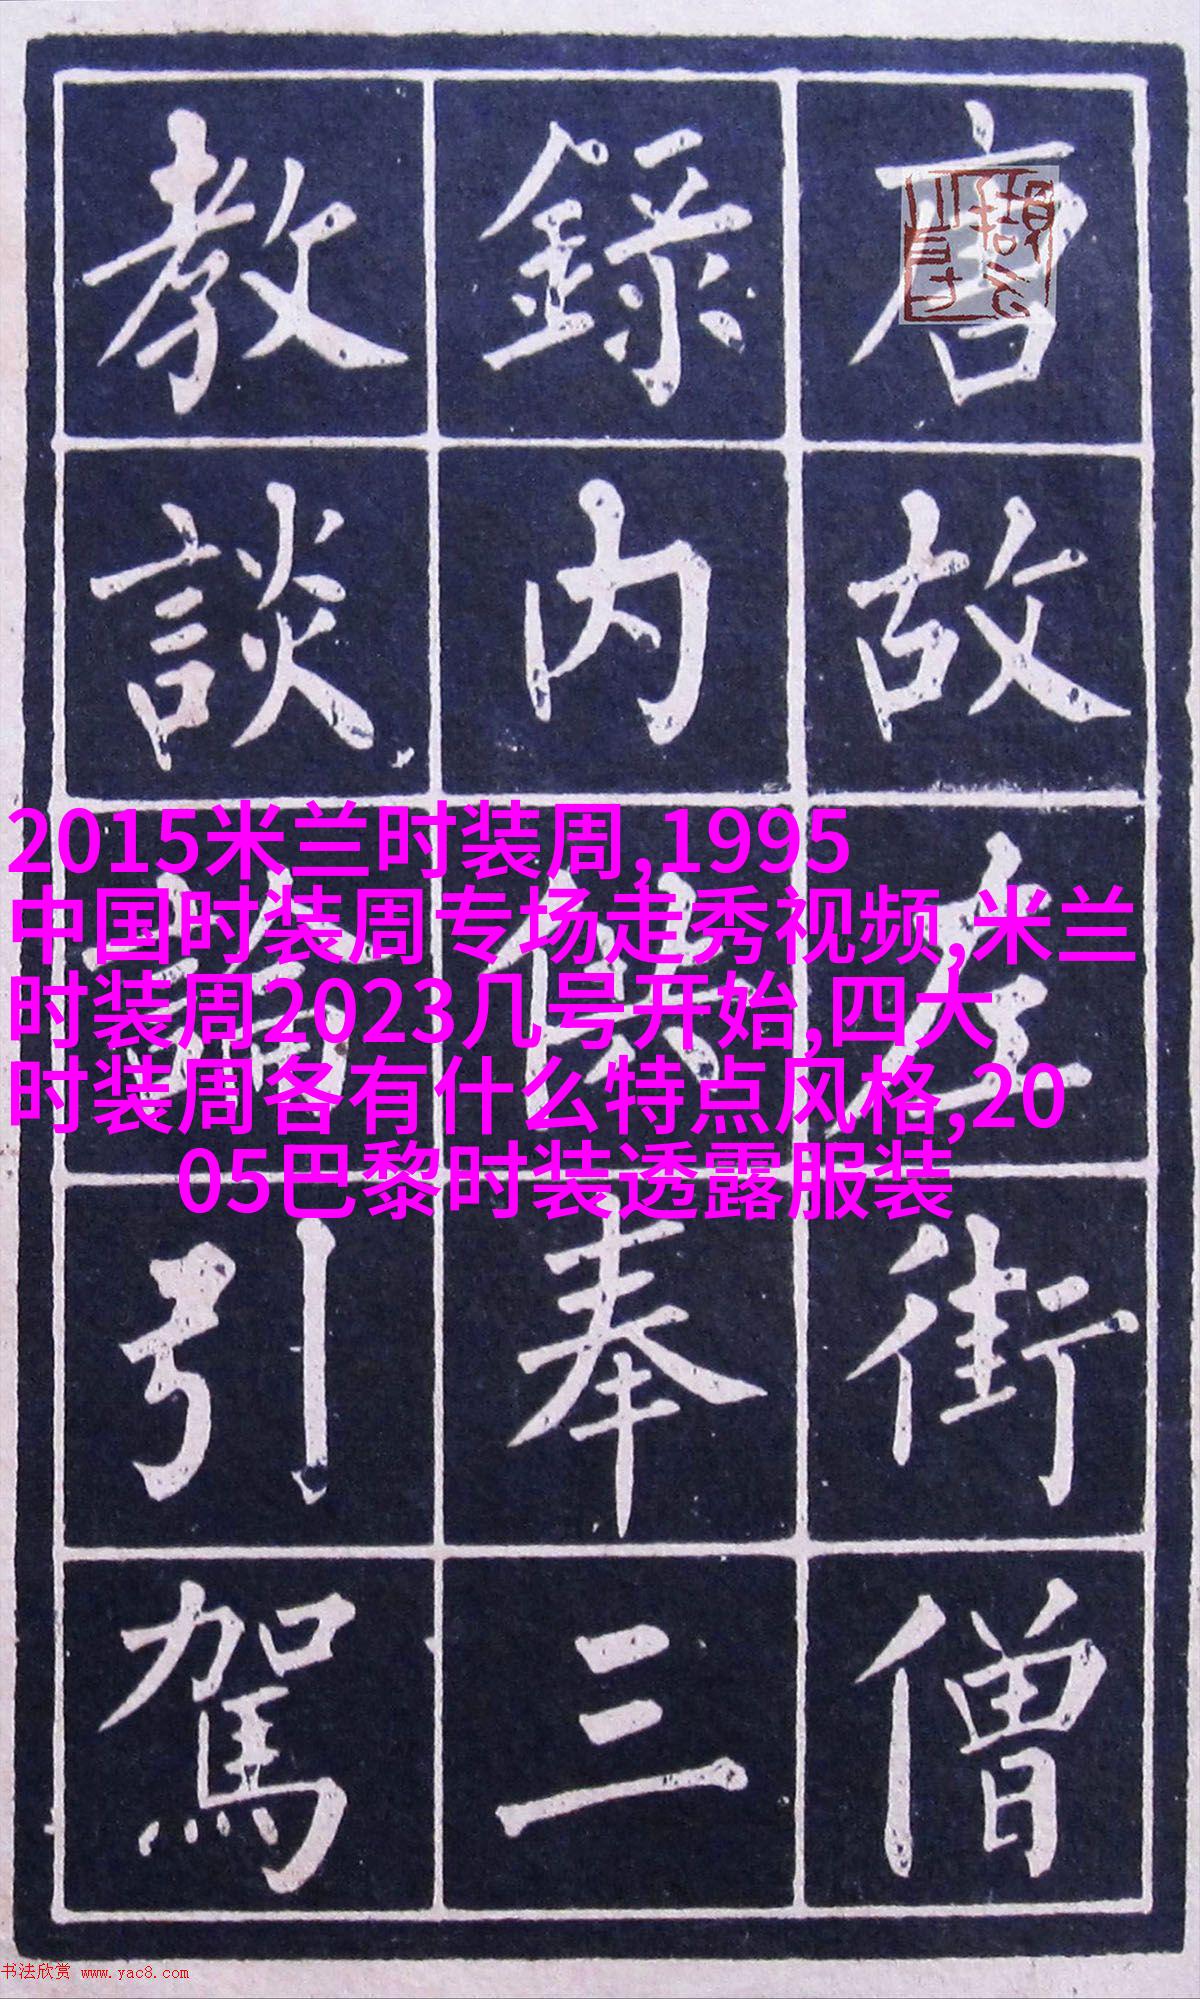 唐故左街僧
錄內供奉三
教談論引駕
2015米兰时装周,1995
中国时装周专场走秀视频,米兰
时装周2023几号开始,四大
时装周各有什么特点风格,20
05巴黎时装透露服装
书法欣赏 www.yac8.com